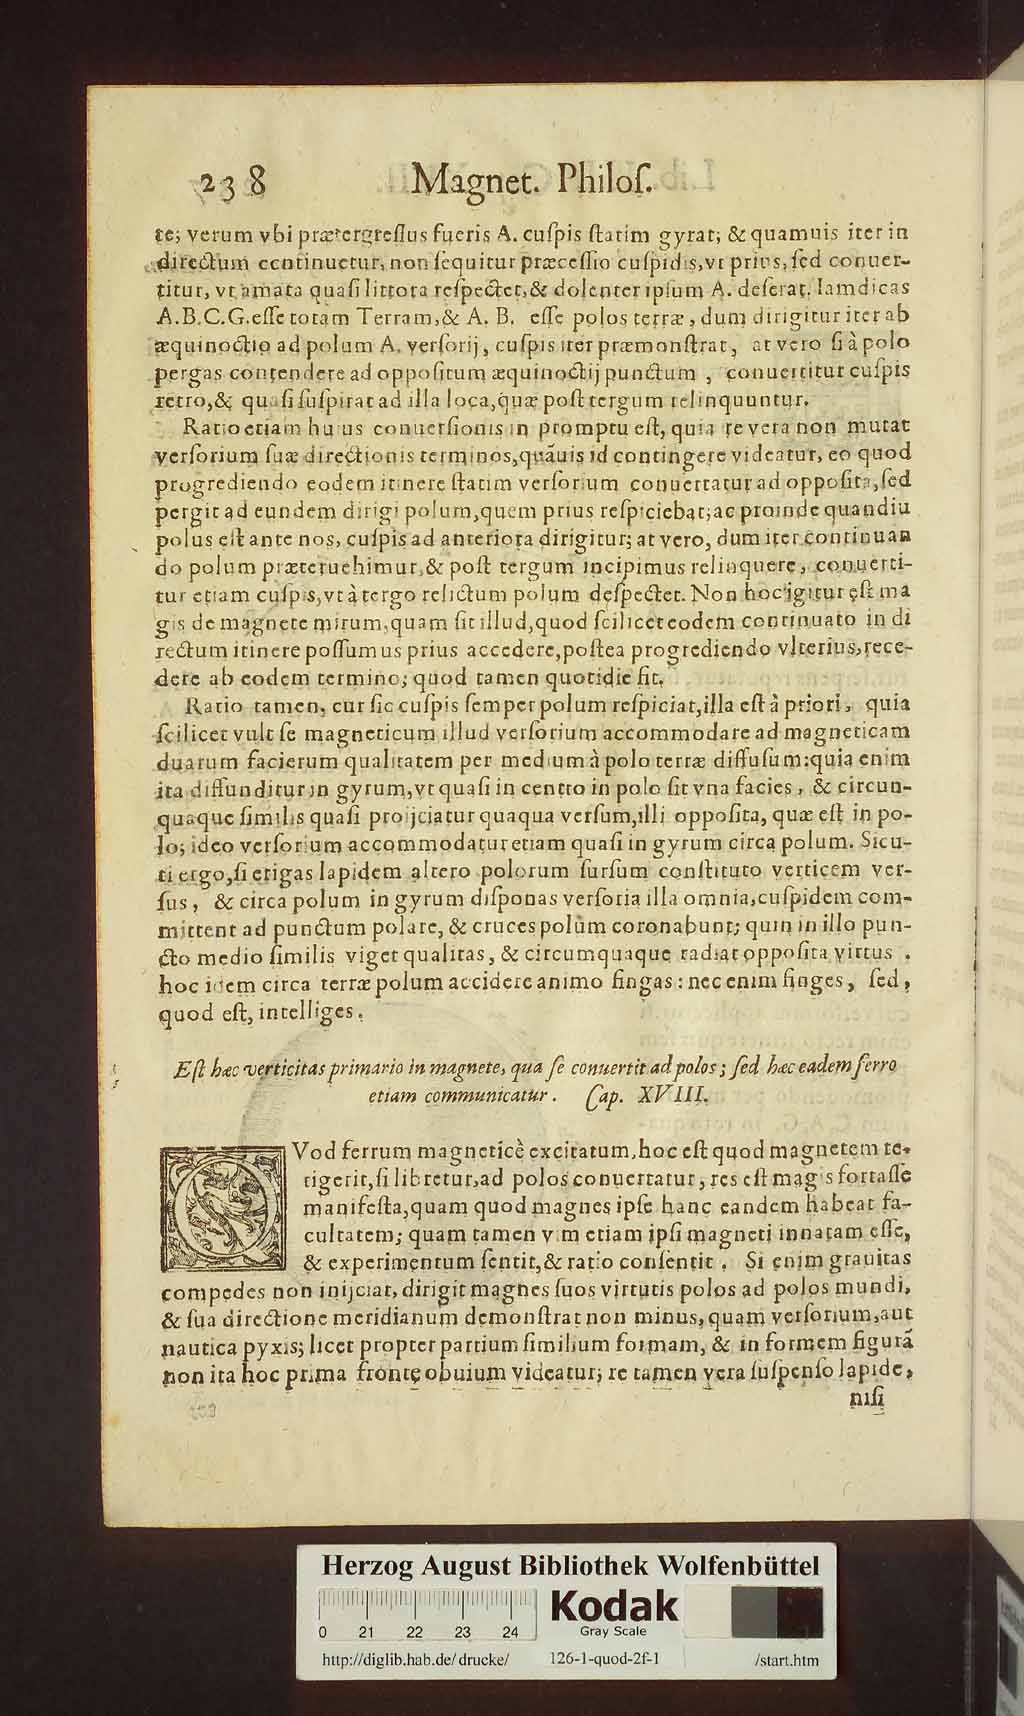 238 Magnet. Philoſ.
te; verum vbi prætergreſſus fueris A. cuſpis ſtatim gyrat; & quamuis iter in
directum continuetur, non ſequitur præceſſio cuſpidis, vt prius, ſed conuer-
titur, vt amata quaſi littora reſpectet, & dolenter ipſum A. deſerat. Iam dicas
A.B.C.G. eſſe totam Terram, & A. B. eſſe polos terræ, dum dirigitur iter ab
æquinoctio ad polum A. verſorij, cuſpis iter præmonſtrat, at vero ſi à polo
pergas contendere ad oppoſitum æquinoctij punctum, conuertitur cuſpis
retro, & quaſi ſuſpirat ad illa loca, quæ poſt tergum relinquuntur.
Ratio etiam huius conuerſionis in promptu eſt, quia re vera non mutat
verſorium ſuæ directionis terminos, quãuis id contingere videatur, eo quod
progrediendo eodem itinere ſtatim verſorium conuertatur ad oppoſita, ſed
pergit ad eundem dirigi polum, quem prius reſpiciebat; ac proinde quandiu
polus eſt ante nos, cuſpis ad anteriora dirigitur; at vero, dum iter continuan
do polum præteruehimur, & poſt tergum incipimus relinquere, conuerti-
tur etiam cuſpis, vt à tergo relictum polum deſpectet. Non hoc igitur eſt ma
gis de magnete mirum, quam ſit illud, quod ſcilicet eodem continuato in di
rectum itinere poſſumus prius accedere, poſtea progrediendo vlterius, rece-
dere ab eodem termino; quod tamen quotidie fit.
Ratio tamen, cur ſic cuſpis ſemper polum reſpiciat, illa eſt à priori, quia
ſcilicet vult ſe magneticum illud verſorium accommodare ad magneticam
duarum facierum qualitatem per medium à polo terræ diffuſum: quia enim
ita diffunditur in gyrum, vt quaſi in centro in polo ſit vna facies, & circun-
quaque ſimilis quaſi proijciatur quaqua verſum, illi oppoſita, quæ eſt in po-
lo; ideo verſorium accommodatur etiam quaſi in gyrum circa polum. Sicu-
ti ergo, ſi erigas lapidem altero polorum ſurſum conſtituto verticem ver-
ſus, & circa polum in gyrum diſponas verſoria illa omnia, cuſpidem com-
mittent ad punctum polare, & cruces polũm coronabunt; quin in illo pun-
cto medio ſimilis viget qualitas, & circumquaque radiat oppoſita virtus.
hoc idem circa terræ polum accidere animo fingas: nec enim finges, ſed,
quod eſt, intelliges.
Eſt hæc verticitas primario in magnete, qua ſe conuertit ad polos; ſed hæc eadem ferro
etiam communicatur. Cap. XVIII.
QVod ferrum magneticè excitatum, hoc eſt quod magnetem te-
tigerit, ſi libretur, ad polos conuertatur, res eſt magis fortaſſe
manifeſta, quam quod magnes ipſe hanc eandem habeat fa-
cultatem; quam tamen vim etiam ipſi magneti innatam eſſe,
& experimentum ſentit, & ratio conſentit. Si enim grauitas
compedes non inijciat, dirigit magnes ſuos virtutis polos ad polos mundi,
& ſua directione meridianum demonſtrat non minus, quam verſorium, aut
nautica pyxis; licet propter partium ſimilium formam, & in formem figurã
non ita hoc prima fronte obuium videatur; re tamen vera ſuſpenſo lapide,
niſi
Herzog August Bibliothek Wolfenbüttel
0 21 22 23 24
Kodak
Gray Scale
http://diglib.hab.de/drucke/ 126-1-quod-2f-1 /start.htm